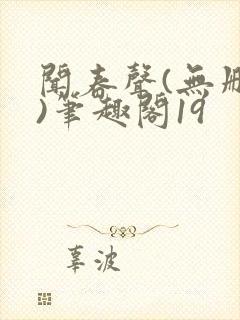 聞春聲(無刪
)筆趣閣19
辜波